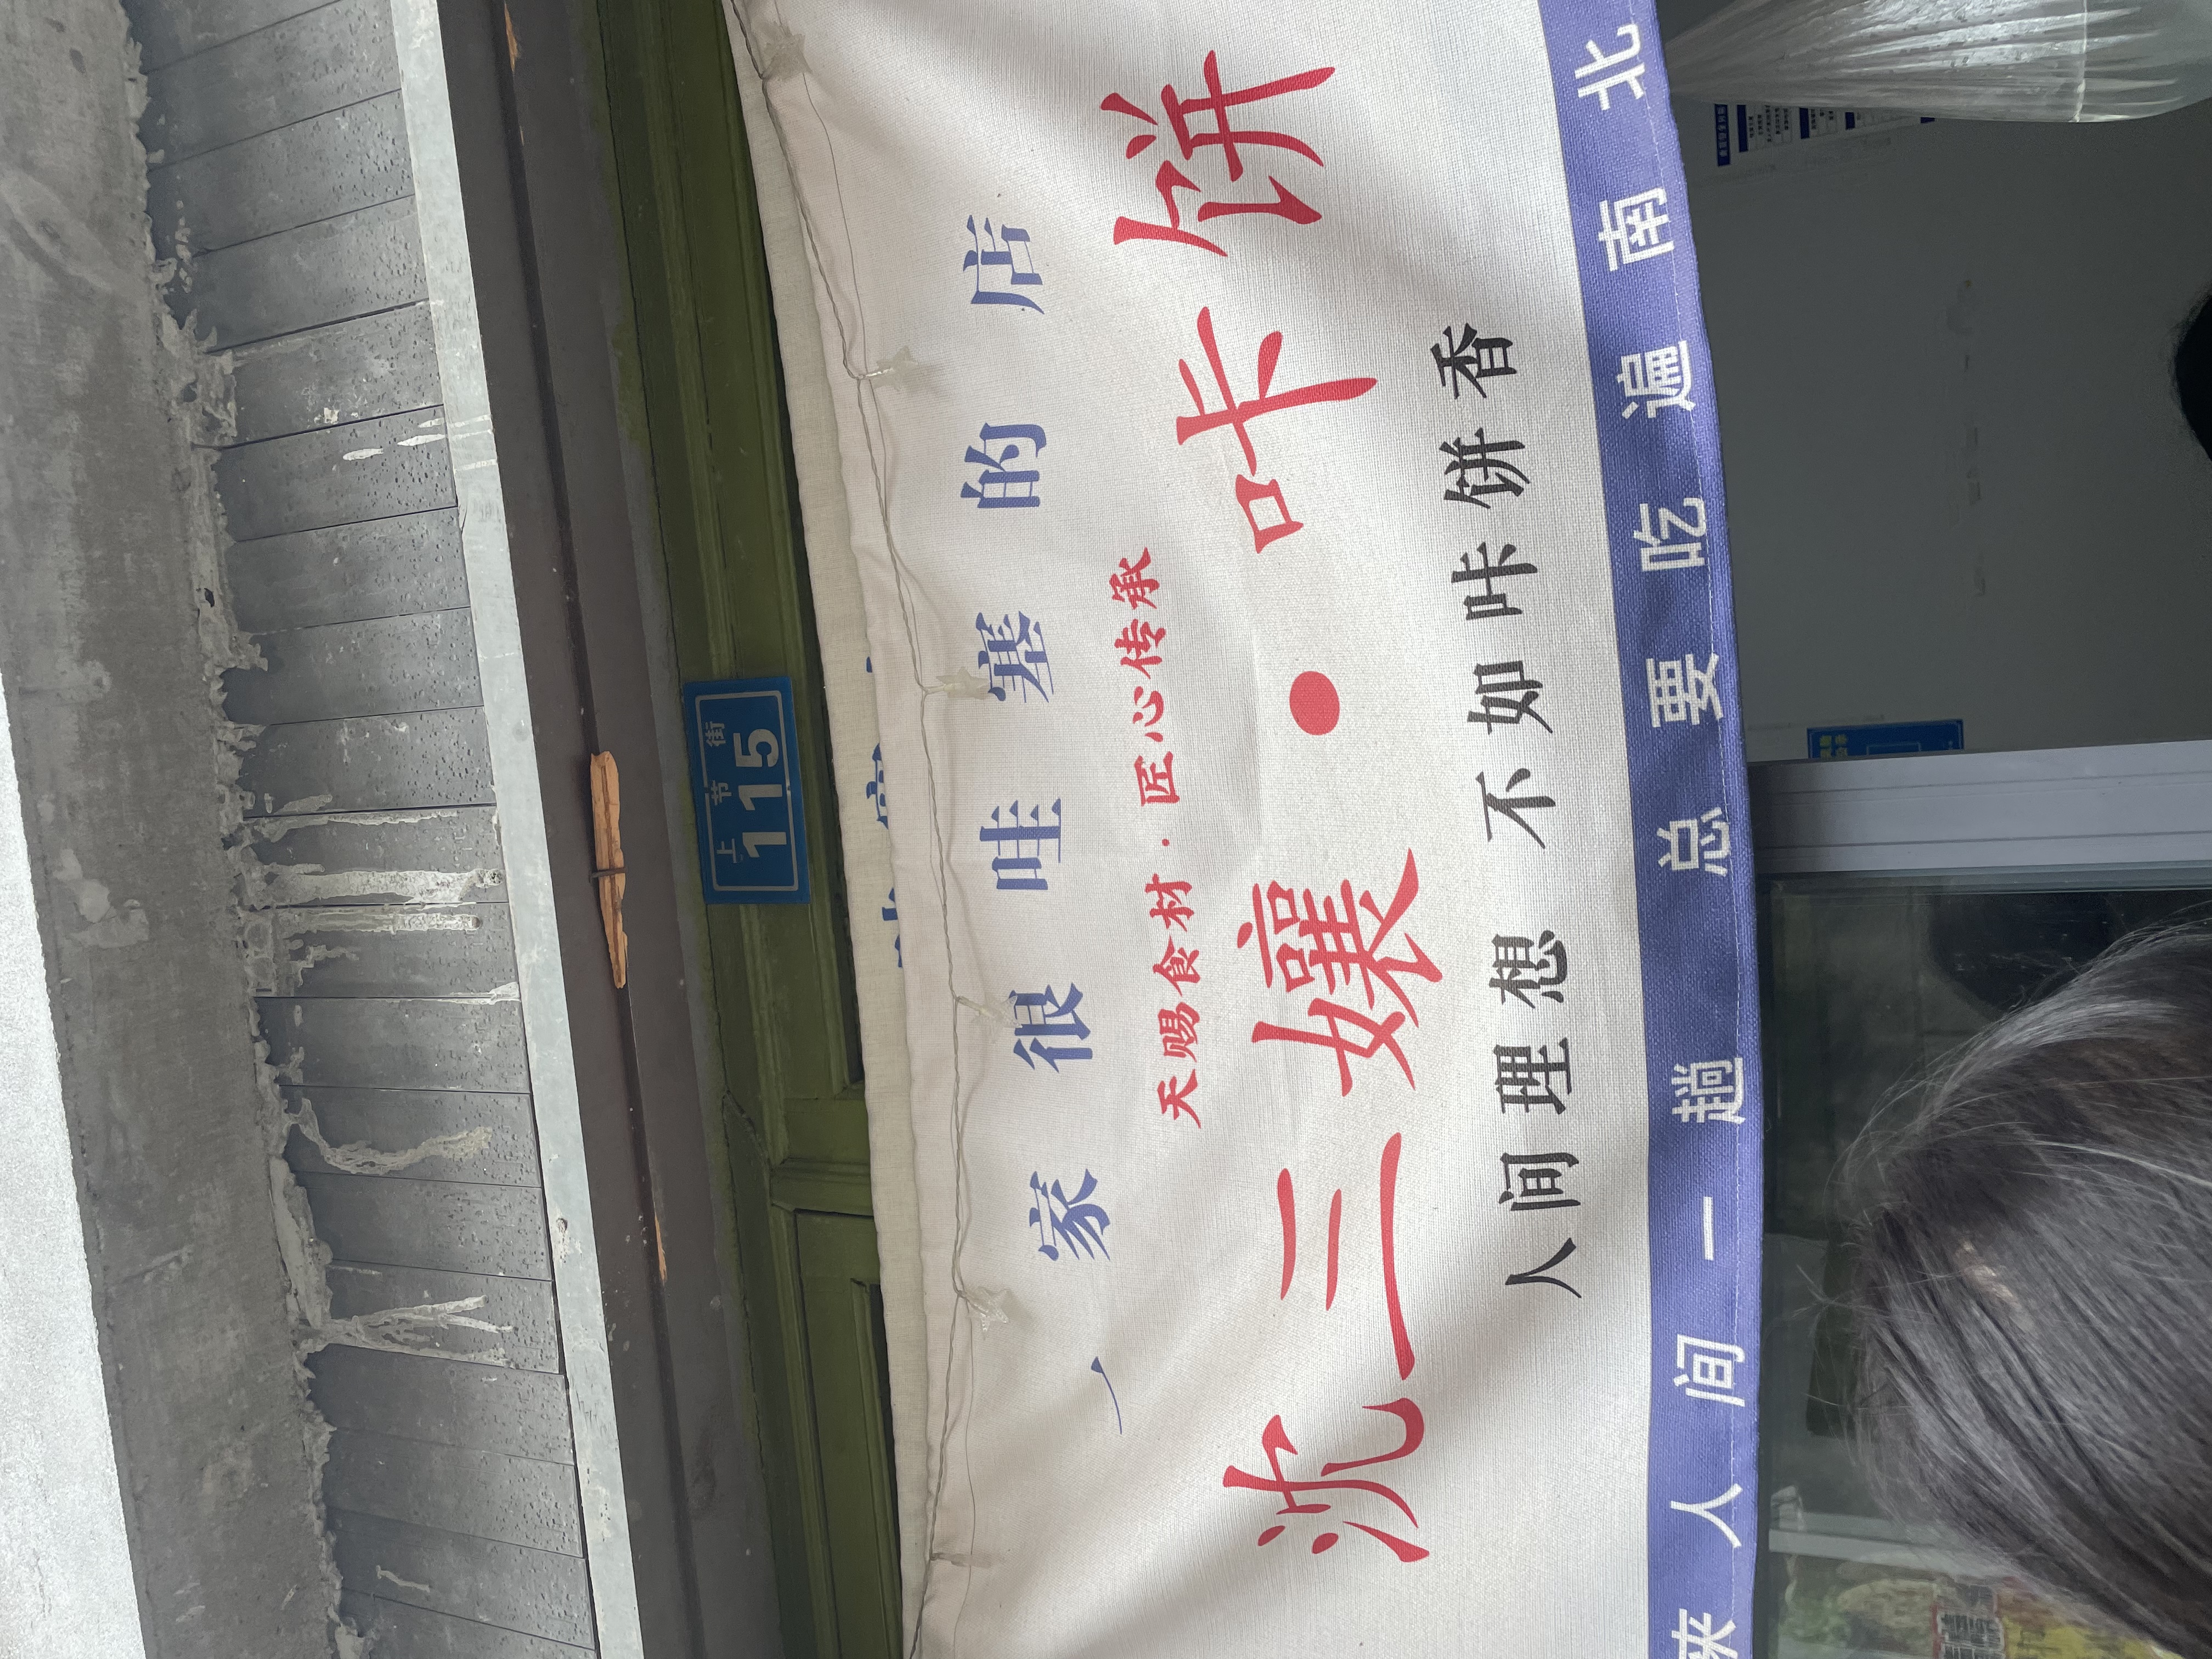 上节街
115
一家很哇塞的店
天赐食材·匠心传承
沈三孃·咔饼
人间理想 不如咔饼香
来人间一趟 总要吃遍南北